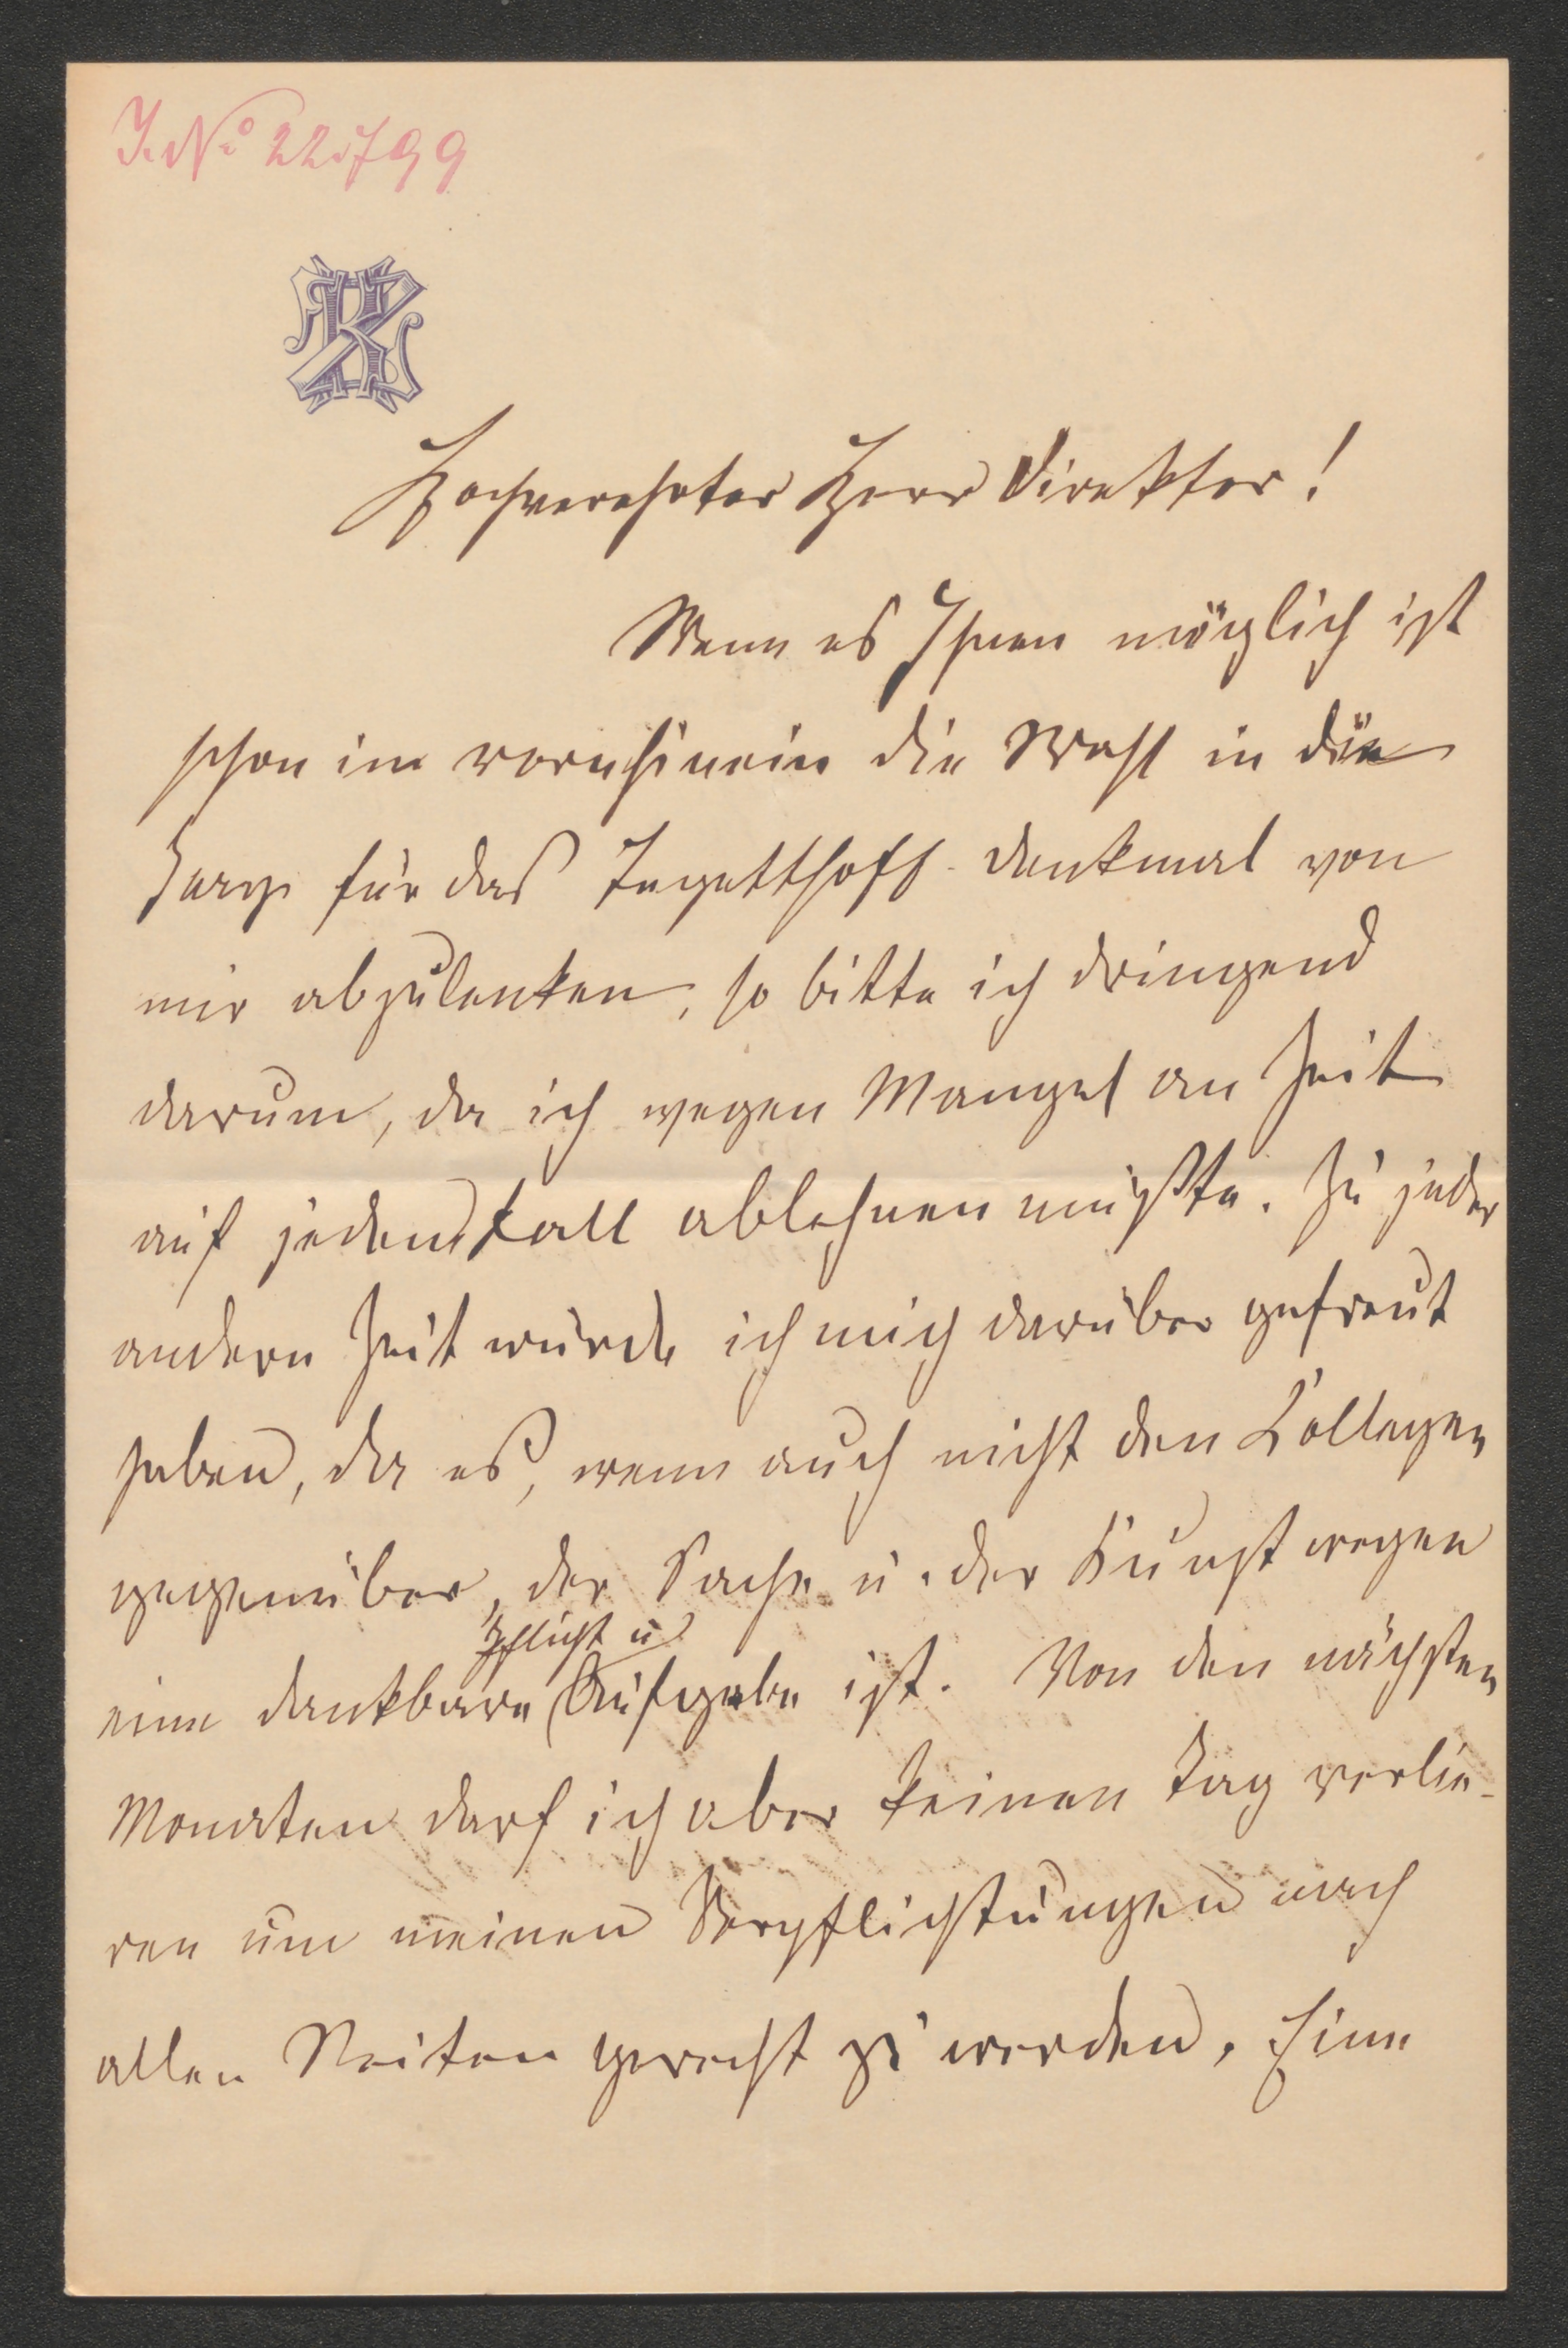 J. No 22799
Hochverehrter Herr Direktor!
Wenn es Ihnen möglich ist
schon im vornhinein die Wahl in die
Jury für das Tegetthoff-Denkmal von
mir abzulenken, so bitte ich dringend
darum, da ich wegen Mangel an Zeit
auf jeden Fall ablehnen müßte. Zu jeder
andern Zeit würde ich mich darüber gefreut
haben, da es, wenn auch nicht den Collegen
gegenüber, der Sache u. der Kunst wegen
Pflicht u
eine dankbare Aufgabe ist. Von den nächsten
Monaten darf ich aber keinen Tag verlie-
ren um meinen Verpflichtungen nach
allen Seiten gerecht zu werden. Eine